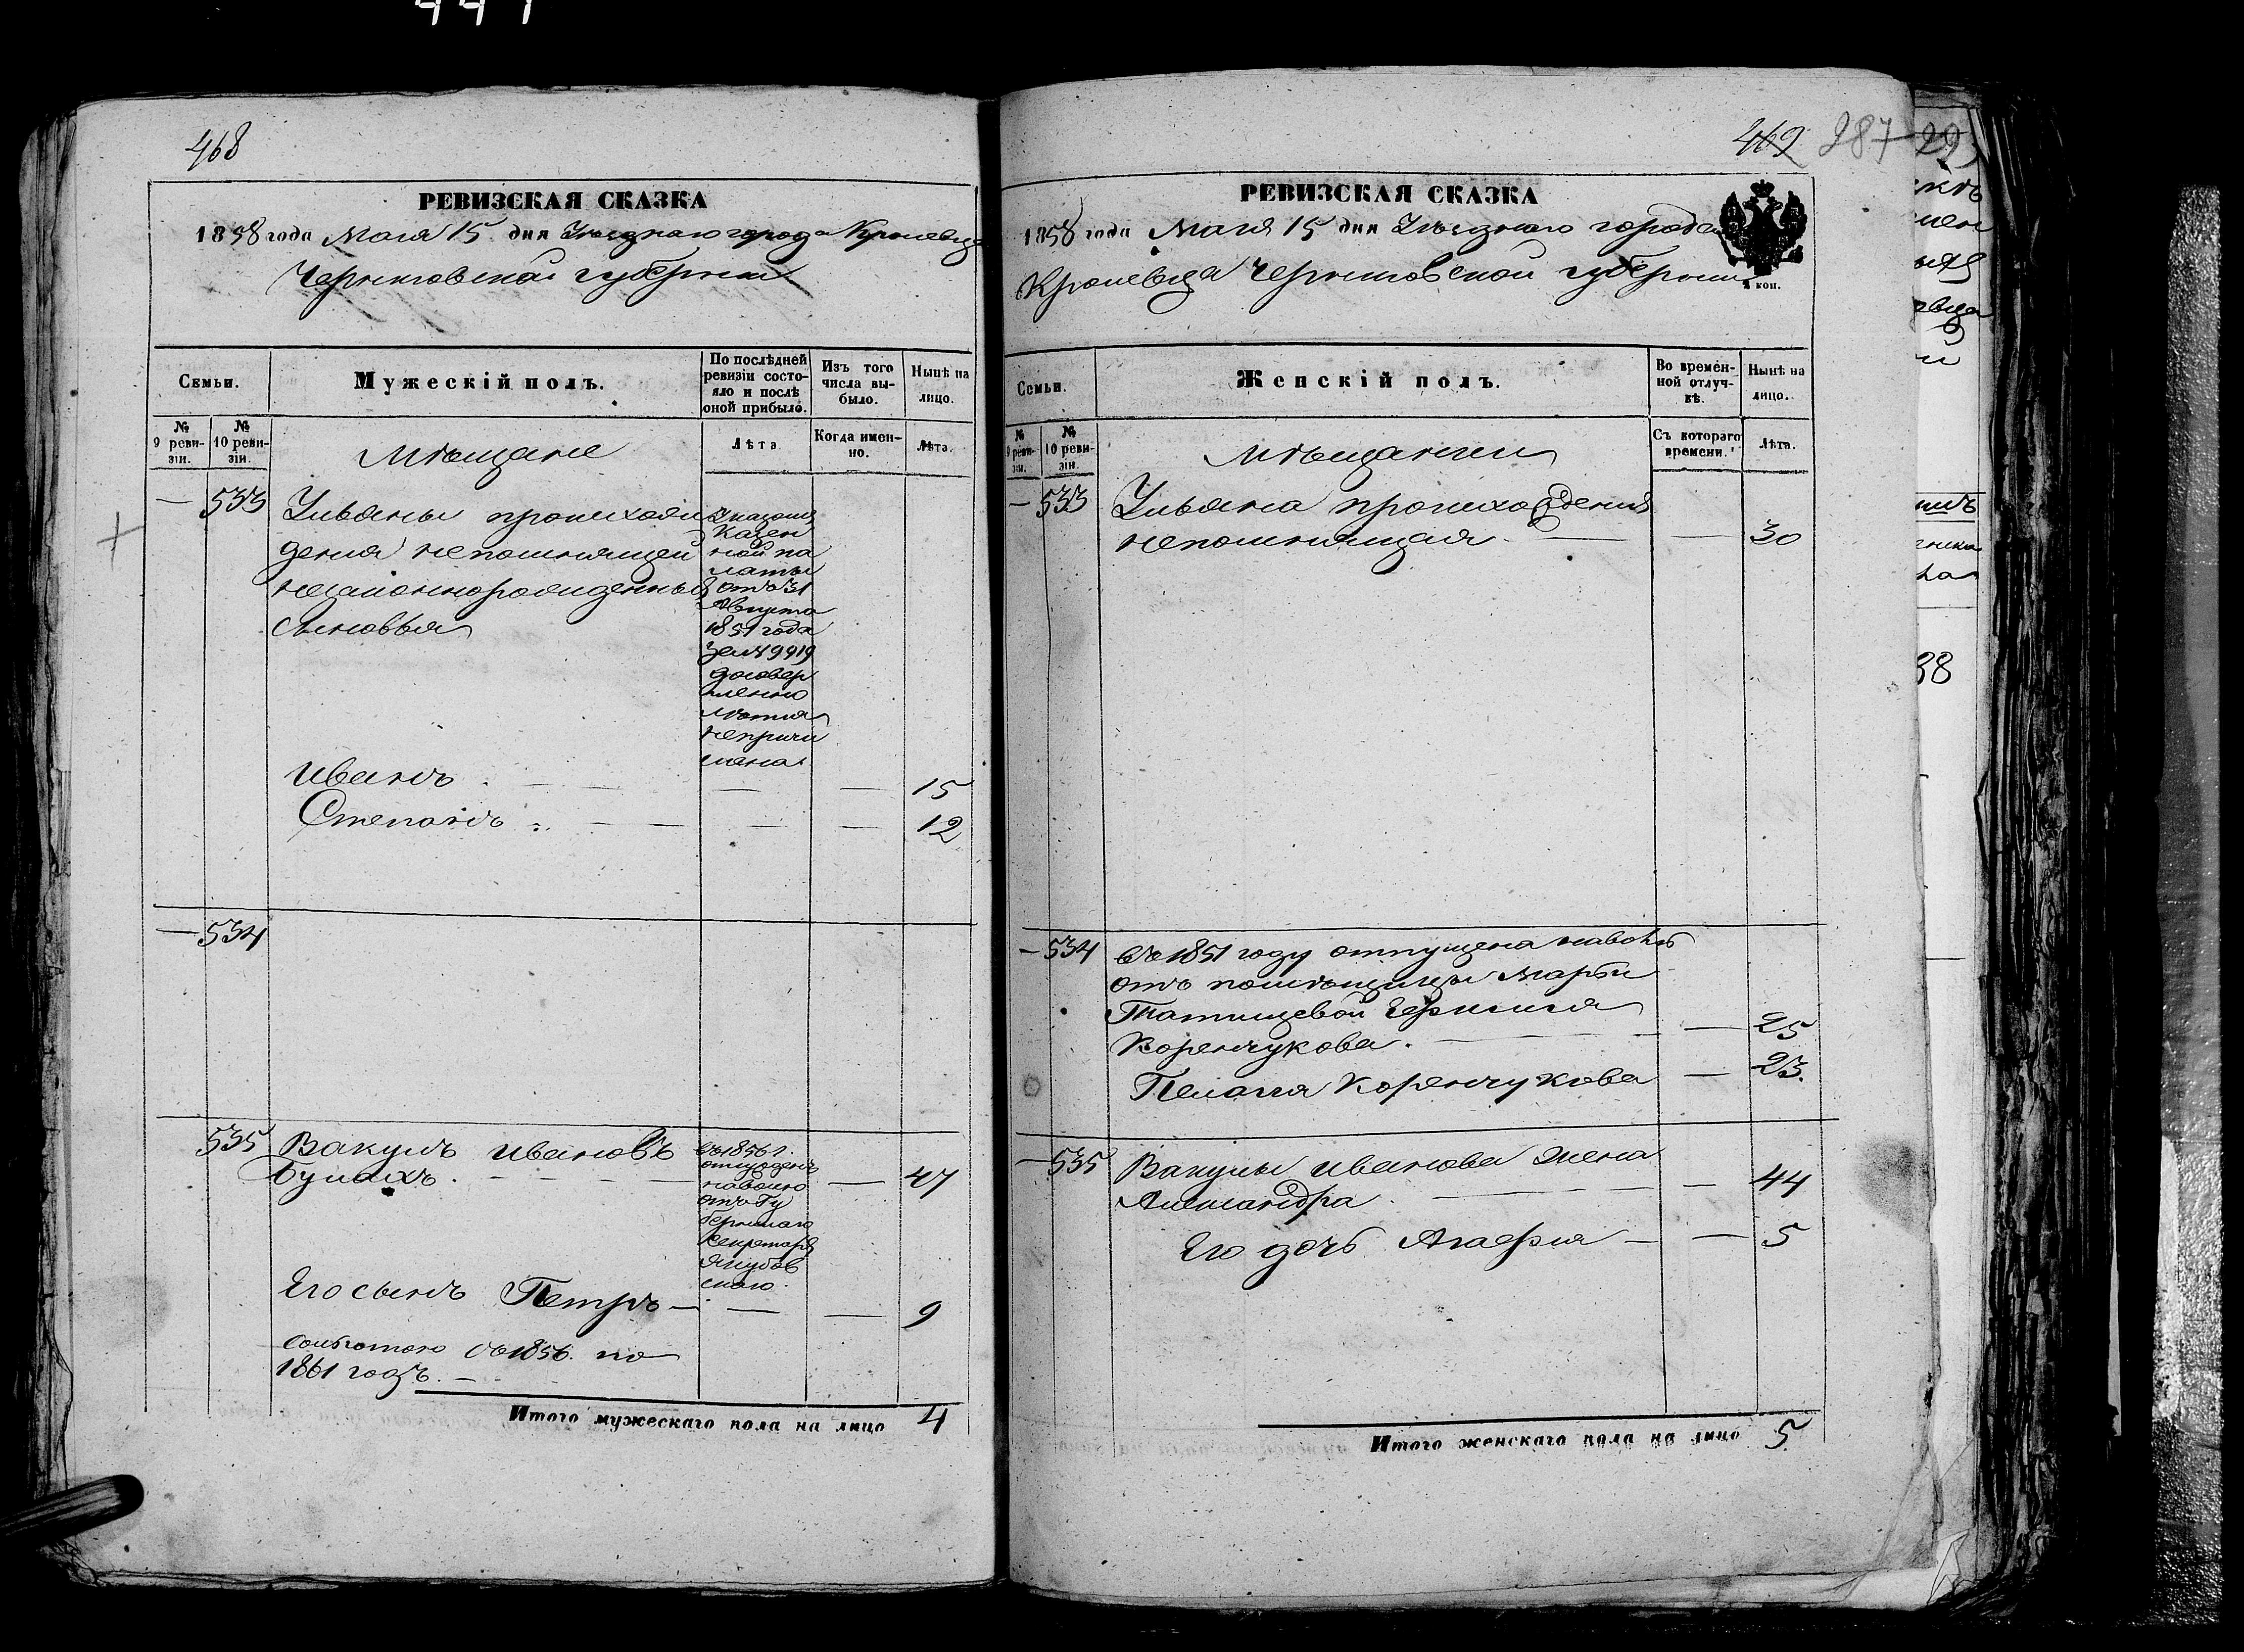 468
РЕВИЗСКАЯ СКАЗКА
1858 года Маія 15 дня Уѣзднаго города Кролевца
Черниговской губерніи
Семьи.
Мужескій полъ.
По послѣдней ревизіи состояло и послѣ оной прибыло.
Изъ того числа выбыло.
Нынѣ на лицо.
№ 9 ревизіи.
№ 10 ревизіи.
Мѣщане
Лѣта
Когда именно.
Лѣта.
— 533 Ульяны происхож
денія непомнящей
незаконнорожденныя
Сыновья
Указомъ
Казен
ной па
латы
отъ 31
Августа
1851 года
за № 9919
до совер
шеннаго
лѣтія
причи
слены
Иванъ . — — — — 15
Степанъ . — — — — 12
— 534
535 Вакулъ Ивановъ
— 47
въ 1856 г.
отпущенъ
наволю
отъ Гу
бернскаго
Секретаря
Якубов
скаго
Его сынъ Петръ — — — 9
Сольготою съ 1856 по
1861 годъ. —
Итого мужескаго пола на лицо 4
469 287 293
РЕВИЗСКАЯ СКАЗКА
1858 года Маія 15 дня Уѣзднаго города
Кролевца Черниговской губерніи
коп.
Семьи.
Женскій полъ.
Во временной отлучкѣ.
Нынѣ на лицо.
№ 9 ревизіи.
№ 10 ревизіи.
Мѣщанки
Съ котораго времени.
Лѣта.
— 533 Ульяна происхожденія
непомнящая — — 30
— 534 въ 1851 году отпущена наволю
отъ помѣщицы Марьи
Татищевой
Коренчукова . — — 25
Пелагія Коренчукова — 23.
— 535 Вакулы Иванова жена
Александра . — — 44
Его дочь Агафія — — 5
Итого женскаго пола на лицо 5
88